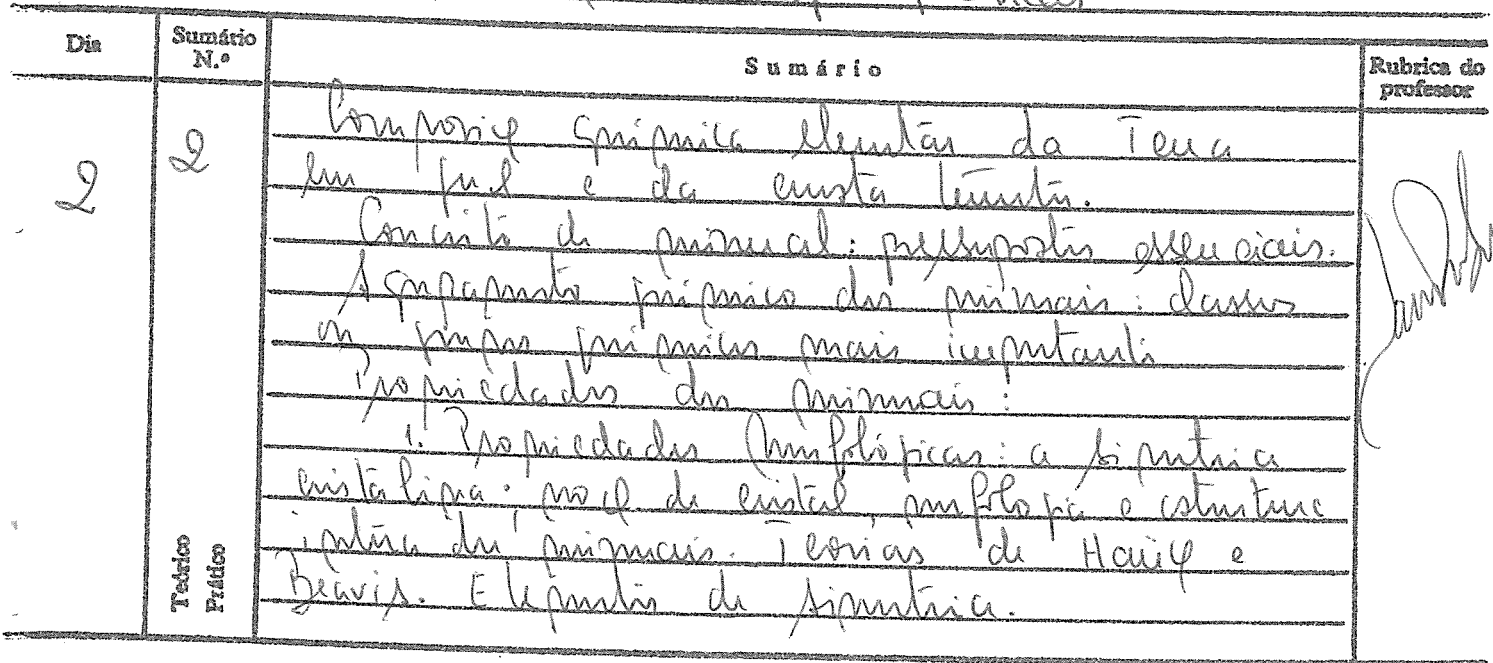 Dia
Sumário N.º
Sumário
Rubrica do professor
2
2
Composição química elementar da Terra
em geral e da crusta terrestre.
Conceito de mineral: pressupostos essenciais.
Agrupamento químico dos minerais: classes
ou grupos químicos mais importantes
Propriedades dos minerais:
1. Propriedades morfológicas: a simetria
cristalina: noção de cristal, morfologia e estrutura
interna dos minerais. Teorias de Haüy e
Bravais. Elementos de simetria.
Teórico
Prático